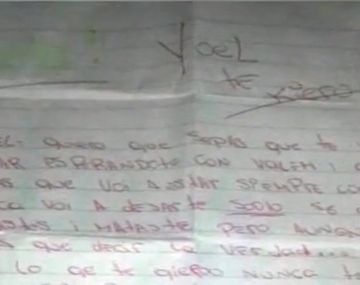 YoeL
te
quiero
EL: quiero que sepas que te
AR ESPERANDOTE CON
S que voi A eStAR SPEMPRE CO
CA VOI A dejARte SOLO Se
i MATASTE PERO AUNQU
S que decir LA VERdad...
LO qe te qIERO NUNCA t